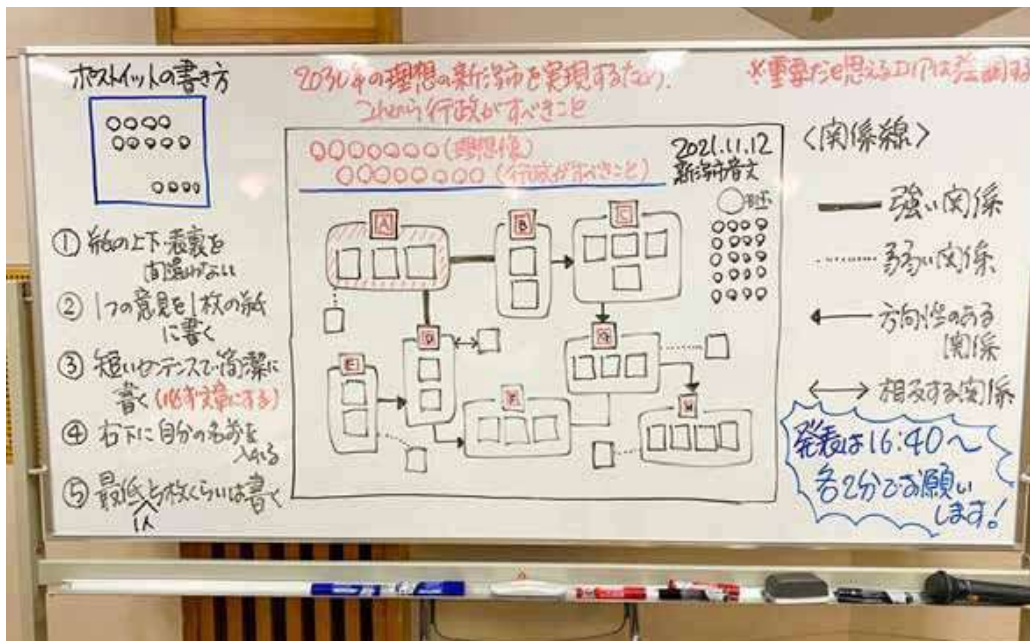 ポストイットの書き方
○○○○
○○○○○
○○○○
① 紙の上下・表裏を
間違わない
② 1つの意見を1枚の紙
に書く
③ 短いセンテンスで簡潔に
書く(必ず文章にする)
④ 右下に自分の名前を
入れる
⑤ 最低5枚くらいは書く
1人
2030年の理想の新潟市を実現するため、
これから行政がすべきこと
○○○○○○○(理想像)
○○○○○○○○(行政がすべきこと)
2021.11.12
新潟市
○班
○○○○
○○○○
○○○○
○○○○
○○○○
A
B
C
D
E
F
G
H
※重要だと思えるエリアは強調する
<関係線>
強い関係
弱い関係
方向性のある
関係
相反する関係
発表は16:40~
各2分でお願い
します!